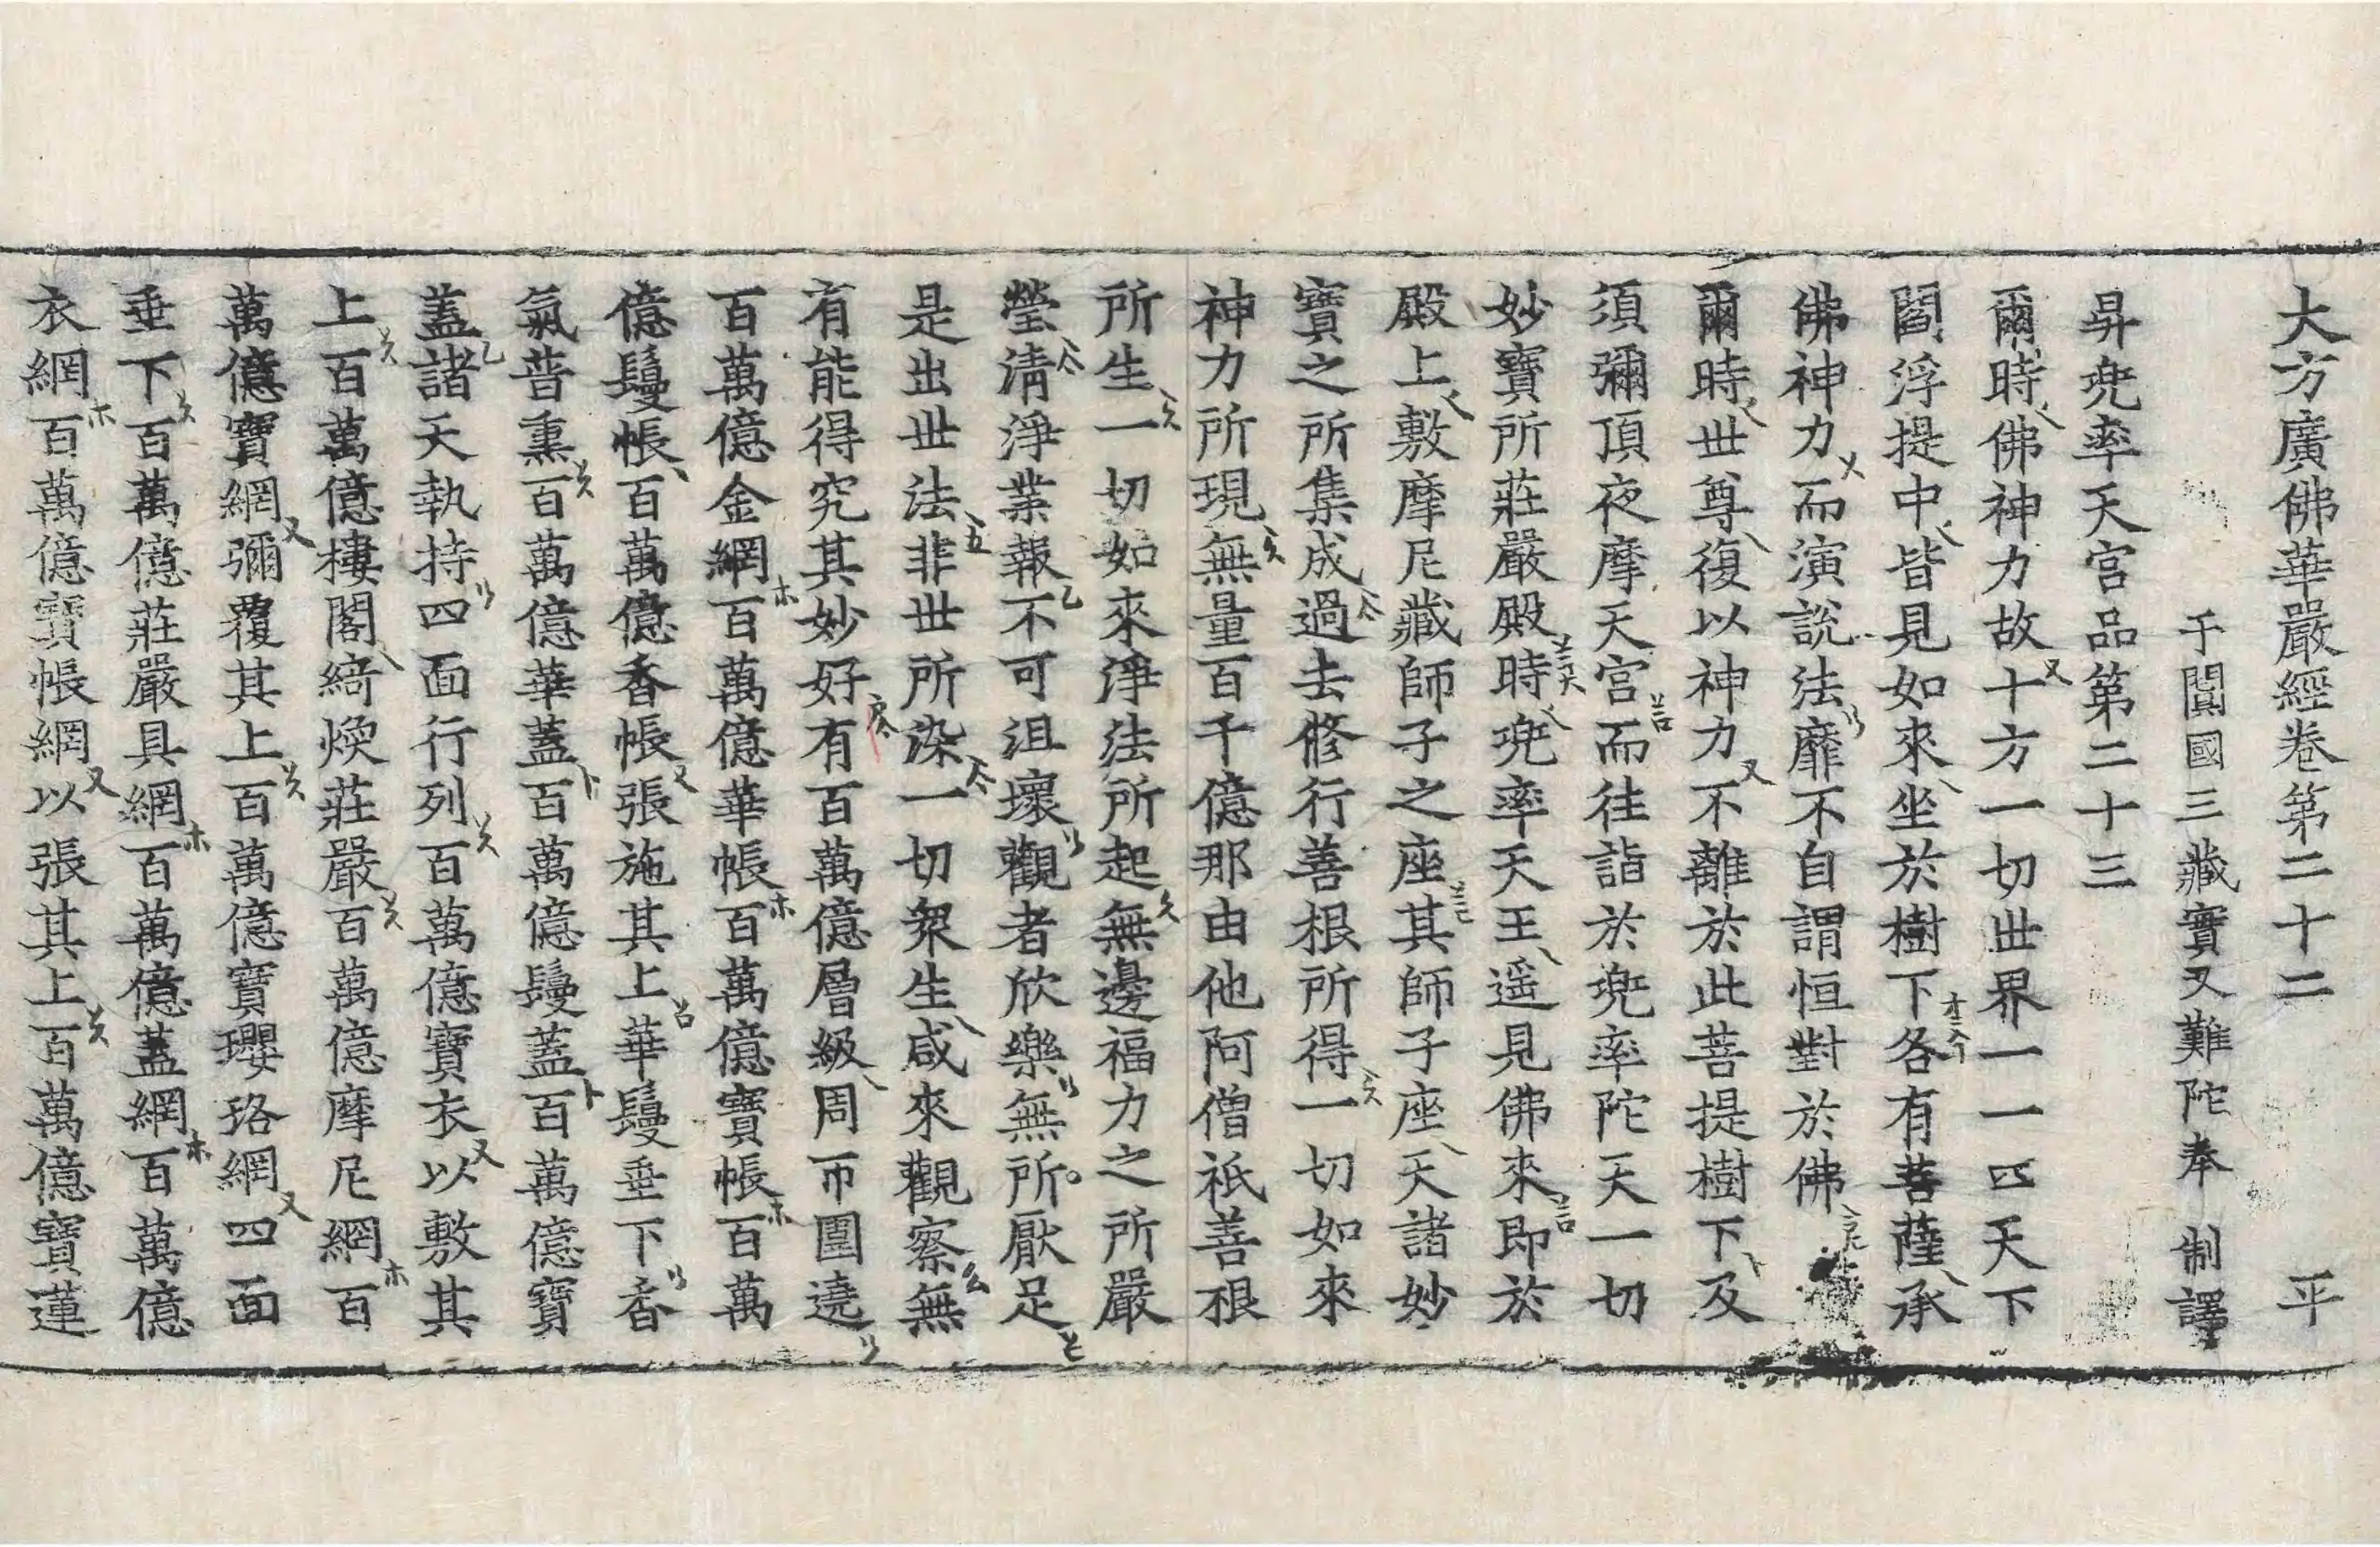 大方廣佛華嚴經卷第二十二 平
于闐國三藏實叉難陀奉 制譯
昇兜率天宮品第二十三
爾時佛神力故十方一切世界一一四天下
閻浮提中皆見如來坐於樹下各有菩薩承
佛神力而演說法靡不自謂恒對於佛
爾時世尊復以神力不離於此菩提樹下及
須彌頂夜摩天宮而往詣於兜率陀天一切
妙寶所莊嚴殿時兜率天王遥見佛來即於
殿上敷摩尼藏師子之座其師子座天諸妙
寶之所集成過去修行善根所得一切如來
神力所現無量百千億那由他阿僧祇善根
所生一切如來淨法所起無邊福力之所嚴
瑩清淨業報不可沮壞觀者欣樂無所厭足
是出世法非世所染一切衆生咸來觀察無
有能得究其妙好有百萬億層級周帀圍遶
百萬億金網百萬億華帳百萬億寶帳百萬
億鬘帳百萬億香帳張施其上華鬘垂下香
氣普熏百萬億華蓋百萬億鬘蓋百萬億寶
蓋諸天執持四面行列百萬億寶衣以敷其
上百萬億樓閣綺煥莊嚴百萬億摩尼網百
萬億寶網彌覆其上百萬億寶瓔珞網四面
垂下百萬億莊嚴具網百萬億蓋網百萬億
衣網百萬億寶帳網以張其上百萬億寶蓮